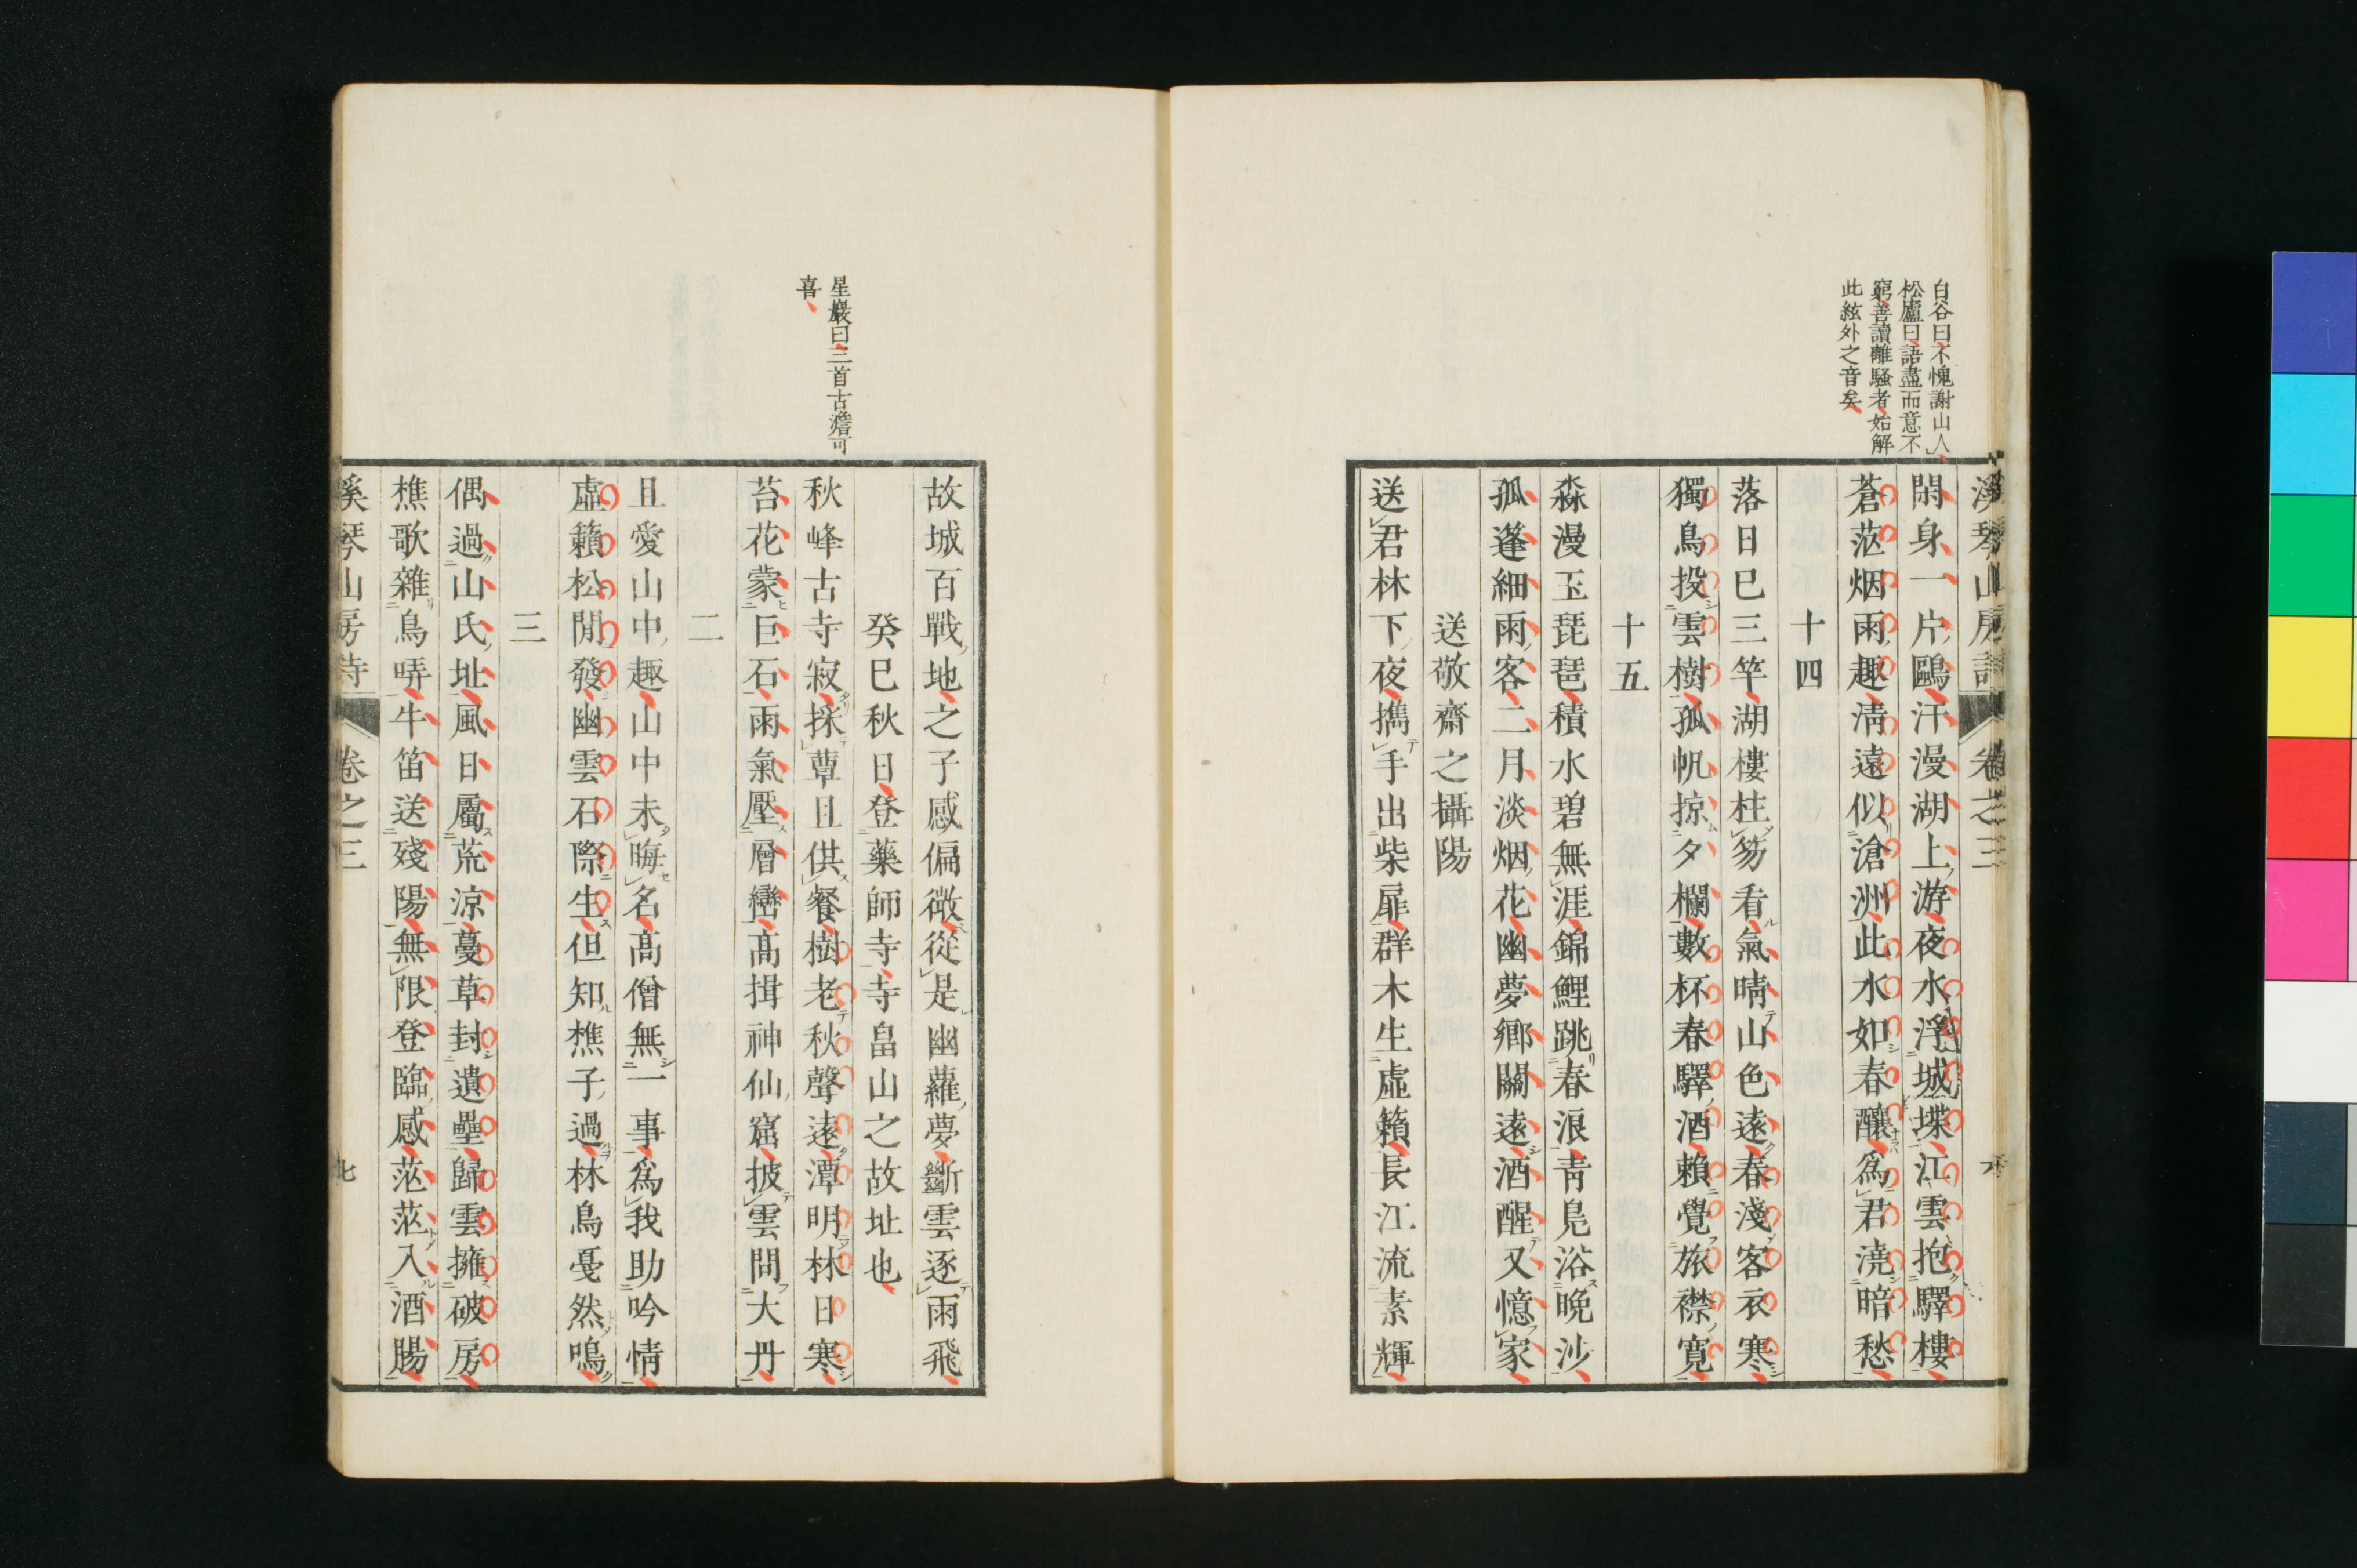 溪琴山房詩 卷之三
白谷曰不愧謝山人
松廬曰語盡而意不
窮善讀離騷者始解
此絃外之音矣
閑身一片鷗汗漫湖上游夜水浮城堞江雲抱驛樓
蒼茫烟雨趣淸遠似滄洲此水如春釀爲君澆暗愁
十四
落日巳三竿湖樓柱笏看氣晴山色遠春淺客衣寒
獨鳥投雲樹孤帆掠夕欄數杯春驛酒賴覺旅襟寛
十五
淼漫玉琵琶積水碧無涯錦鯉跳春浪靑鳧浴晩沙
孤篷細雨客二月淡烟花幽夢鄉關遠酒醒又憶家
送敬齋之攝陽
送君林下夜携手出柴扉群木生虛籟長江流素輝
故城百戰地之子感偏微從是幽蘿夢斷雲逐雨飛
癸巳秋日登藥師寺寺畠山之故址也
星巖曰三首古澹可
喜
秋峰古寺寂採蕈且供餐樹老秋聲遠潭明林日寒
苔花蒙巨石雨氣壓層巒高揖神仙窟披雲問大丹
二
且愛山中趣山中未晦名高僧無一事爲我助吟情
虛籟松閒發幽雲石際生但知樵子過林鳥戞然鳴
三
偶過山氏址風日屬荒涼蔓草封遺壘歸雲擁破房
樵歌雜鳥哢牛笛送殘陽無限登臨感茫茫入酒腸
溪琴山房詩 卷之三